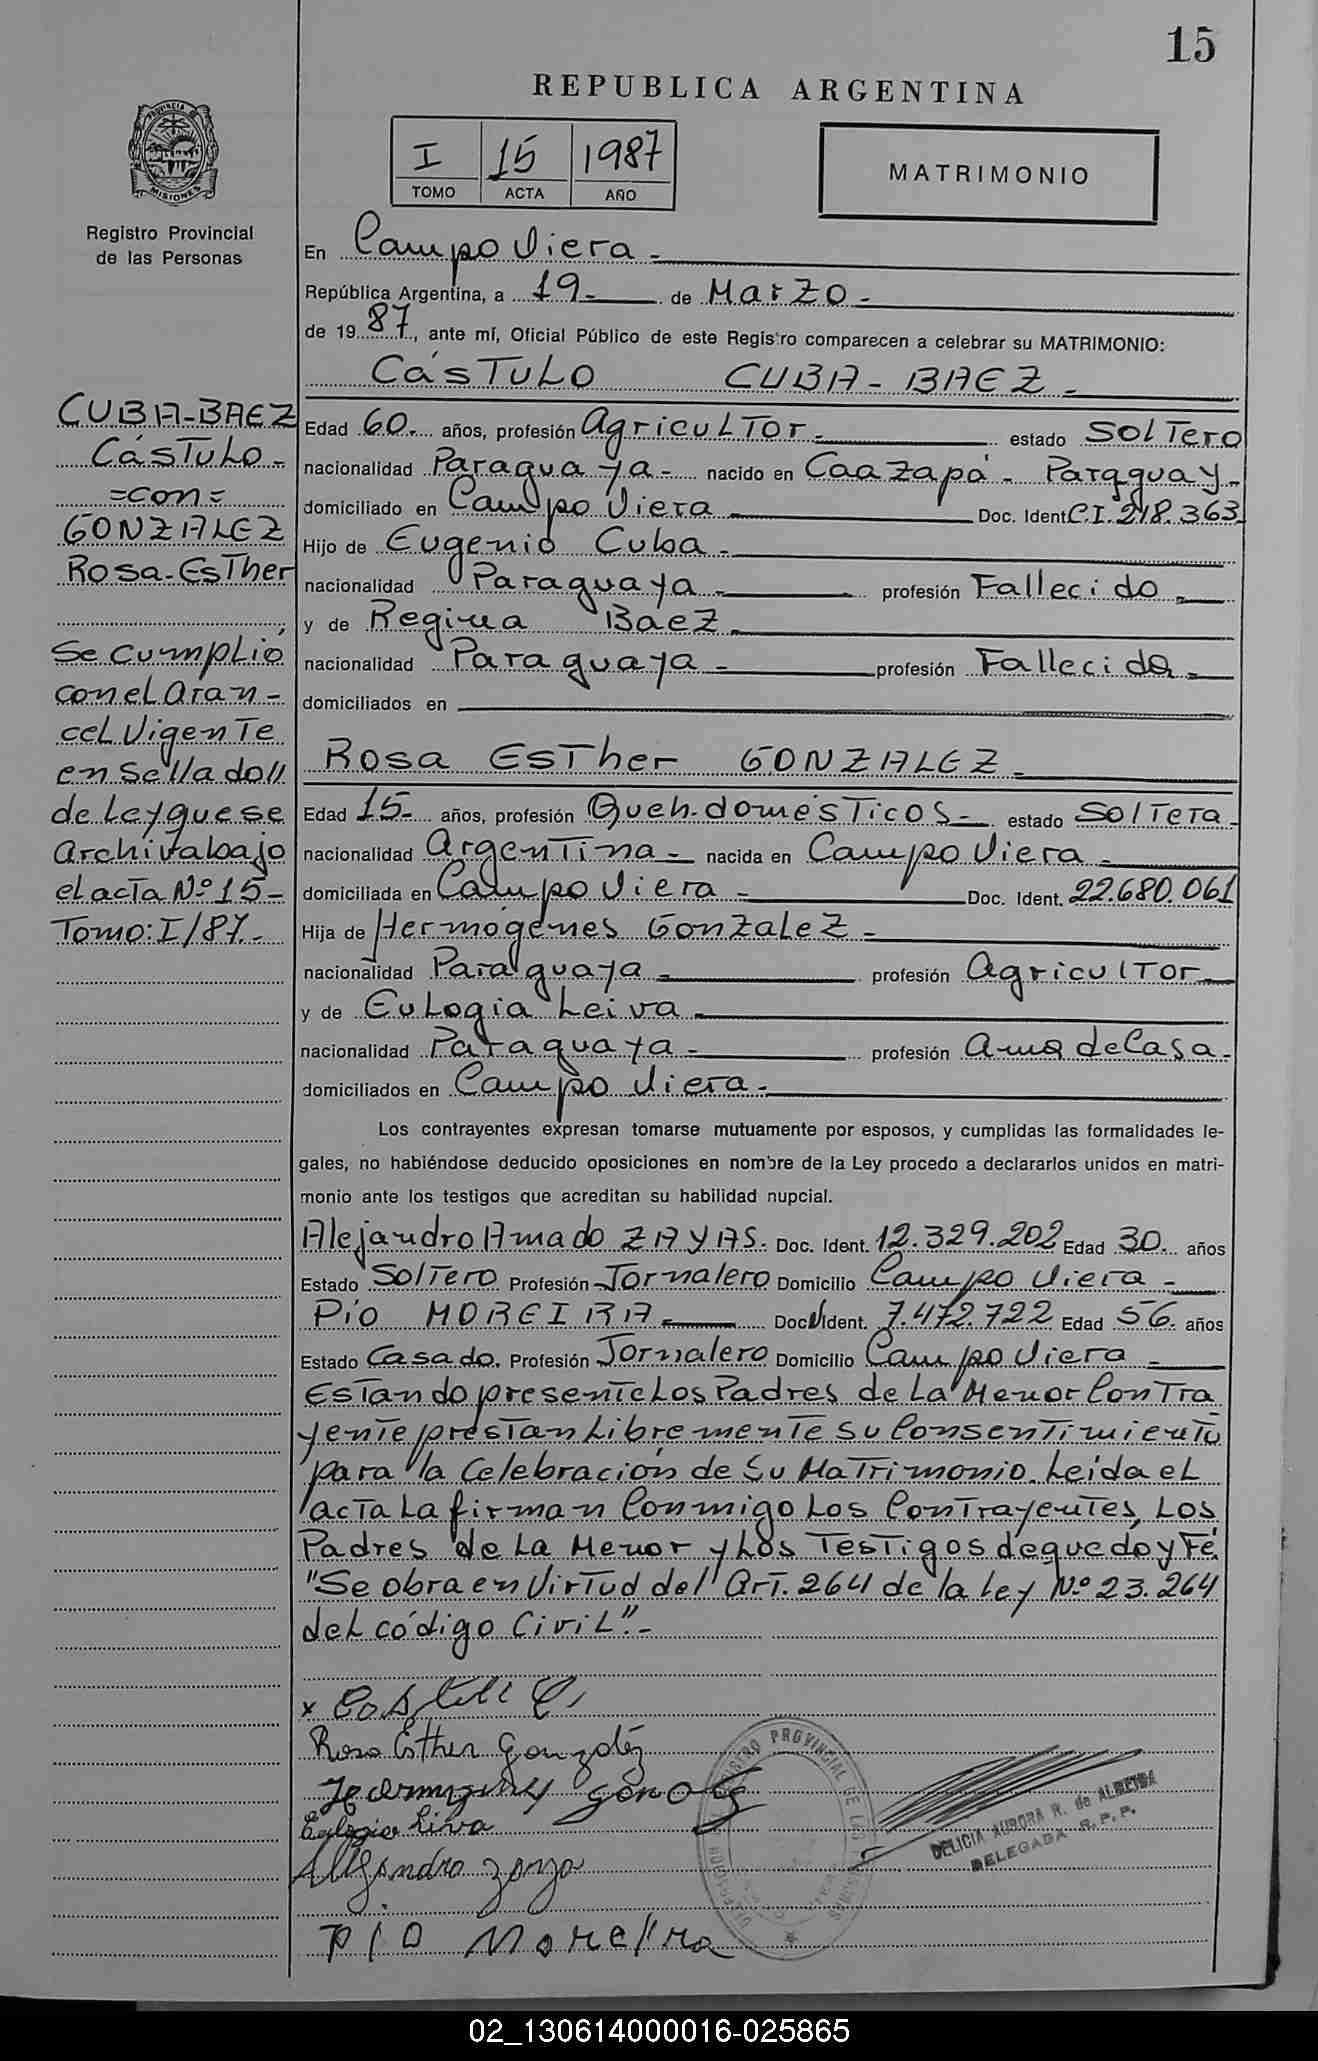 15
REPUBLICA ARGENTINA
I 15 1987
TOMO ACTA AÑO
MATRIMONIO
PROVINCIA DE
MISIONES
Registro Provincial
de las Personas
En Campo Viera.-
República Argentina, a 19.- de Marzo.-
de 1987, ante mí, Oficial Público de este Registro comparecen a celebrar su MATRIMONIO:
CásTULO CUBA-BAEZ.-
Edad 60.- años, profesión AgricuLTor.- estado SolTero
nacionalidad Paraguaya.- nacido en Caazapá- Paraguay-
domiciliado en Campo Viera Doc. Ident. C.I. 218.363.
Hijo de Eugenio Cuba.-
nacionalidad Paraguaya.- profesión Fallecido.-
y de Regina Baez.-
nacionalidad Paraguaya.- profesión Fallecida.-
domiciliados en
Rosa EsTher GONZALEZ.-
Edad 15.- años, profesión Queh.domésTicos.- estado SolTera.-
nacionalidad ArgenTina.- nacida en Campo Viera.-
domiciliada en Campo Viera.- Doc. Ident. 22.680.061
Hija de Hermógenes GonzaLeZ.-
nacionalidad Paraguaya.- profesión AgriculTor
y de EuLogia Leiva
nacionalidad Paraguaya.- profesión ama de Casa.-
domiciliados en Campo Viera.-
Los contrayentes expresan tomarse mutuamente por esposos, y cumplidas las formalidades le-
gales, no habiéndose deducido oposiciones en nombre de la Ley procedo a declararlos unidos en matri-
monio ante los testigos que acreditan su habilidad nupcial.
Alejandro Amado ZAYAS. Doc. Ident. 12.329.202 Edad 30. años
Estado SolTero Profesión Jornalero Domicilio Campo Viera.-
Pío MOREIRA Doc. Ident. 7.472.722 Edad 56. años
Estado Casado. Profesión Jornalero Domicilio Campo Viera.-
EsTando presenTe Los Padres de La Menor ConTra
yenTe presTan Libremente su ConsenTimienTo
para la Celebración de Su MaTrimonio. Leída eL
acTa La firman Conmigo Los ConTrayenTes, Los
Padres de La Menor y Los TesTigos de que doy Fé.
"Se obra en VirTud del ArT. 264 de la Ley Nº 23.264
deL código CiviL".-
CUBA-BAEZ
CásTuLo-
=con=
GONZALEZ
Rosa-EsTher
Se cumpLió
con eL aran-
ceL VigenTe
en Sellado//
de Ley que se
Archiva bajo
el acTa Nº 15-
Tomo: I/87.-
x Castulo C.
Rosa Esther González
Hermogenes Gonzalez
Eulogia Leiva
Alejandro Zayas
Pio Moreira
REGISTRO PROVINCIAL DE LAS PERSONAS
DELICIA AURORA R. de ALMEIDA
DELEGADA R.P.P.
02_130614000016-025865